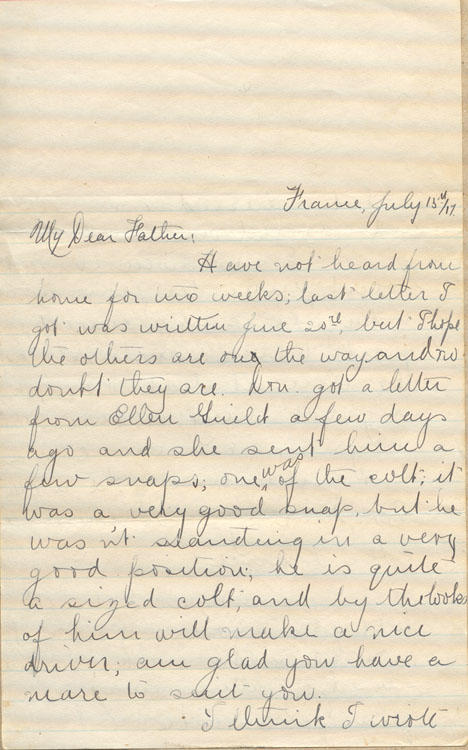 France, July 15th/17
My Dear Father;
Have not heard from
home for two weeks; last letter I
got was written June 20th, but I hope
the others are on the way and no
doubt they are. Don. got a letter
from Ellen Guild a few days
ago and she sent him a
few snaps; one was of the colt; it
was a very good snap, but he
was n't standing in a very
good position; he is quite
a sized colt, and by the looks
of him will make a nice
driver; am glad you have a
mare to suit you.
I think I wrote